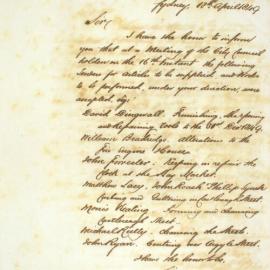 Sydney, 18th April 1849
Sir,
I have the honor to inform
you that at a Meeting of the City Council
holden on the 16th Instant the following
Tenders for articles to be supplied, and Works
to be performed, under your direction, were
accepted, viz:
David Dingwall Furnishing, sharpening
and repairing tools to the 31st Decr 1849.
William alterations to the
Fire engine House.
John Forrester Keeping in repair the
Clock at the Hay Market.
Matthew Lacy, John Roach
Curbing and Guttering in Castlereagh Street.
Morris Keating Forming and
Castlereagh Street.
Michael Reilly the Streets.
John Ryan, Argyle Street.
I have the honor to be,